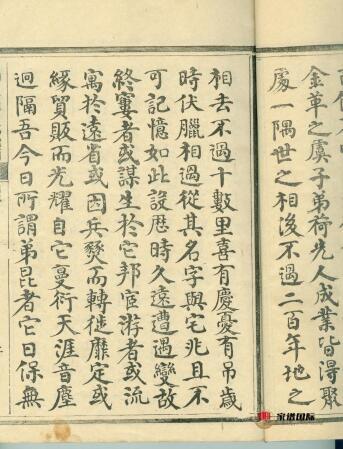 金革之虞子弟荷先人成業皆得聚
處一隅世之相後不過二百年地之
相去不過十數里喜有慶憂有吊歲
時伏臘相過從其名字與宅兆且不
可記憶如此設歷時久遠遭遇變故
終窶者或謀生於它邦宦游者或流
寓於遠省或因兵燹而轉徙靡定或
緣貿販而光耀自它蔓衍天涯音塵
迥隔吾今日所謂弟昆者它日保無
家谱国际